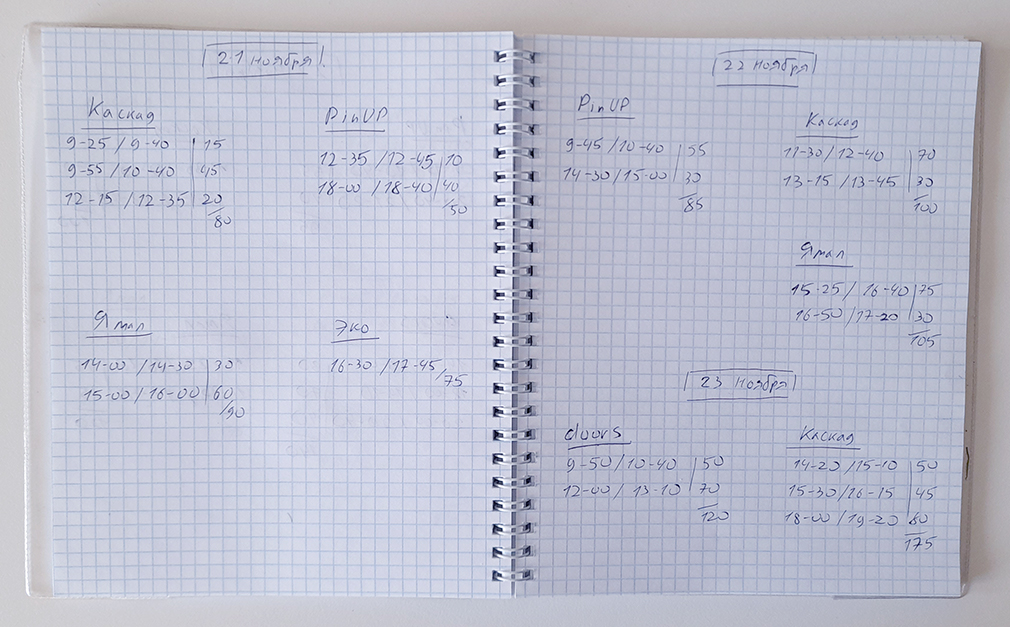 21 ноября
Каскад
9-25 / 9-40 | 15
9-55 / 10-40 | 45
12-15 / 12-35 | 20
/80
PinUP
12-35 / 12-45 | 10
18-00 / 18-40 | 40
/50
Ямал
14-00 / 14-30 | 30
15-00 / 16-00 | 60
/90
Эко
16-30 / 17-45 /75
22 ноября
PinUP
9-45 / 10-40 | 55
14-30 / 15-00 | 30
/85
Каскад
11-30 / 12-40 | 70
13-15 / 13-45 | 30
/100
Ямал
15-25 / 16-40 | 75
16-50 / 17-20 | 30
/105
23 ноября
doors
9-50 / 10-40 | 50
12-00 / 13-10 | 70
/120
Каскад
14-20 / 15-10 | 50
15-30 / 16-15 | 45
18-00 / 19-20 | 80
/175